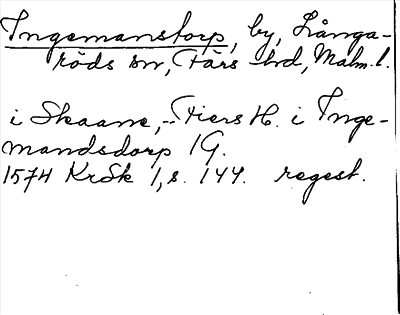 Ingemanstorp, by, Långa-
röds sn, Färs hd, Malm. l.
i Skaane, -- Fiers H. i Inge-
mandsdorp 1 G.
1574 KrSk 1, s. 144. regest.